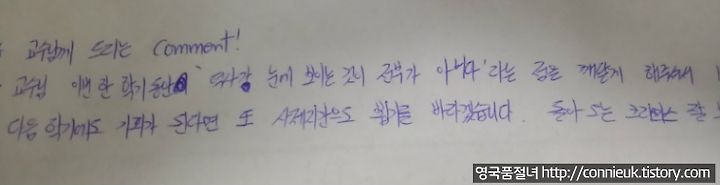 교수님께 드리는 Comment!
교수님 이번 한 학기 동안 '역사란 눈에 보이는 것이 전부가 아니다'라는 점을 깨닫게 해주셔서
다음 학기에도 기회가 된다면 또 사제지간으로 뵙기를 바라겠습니다. 돌아오는 크리스마스 잘
영국품절녀 http://connieuk.tistory.com